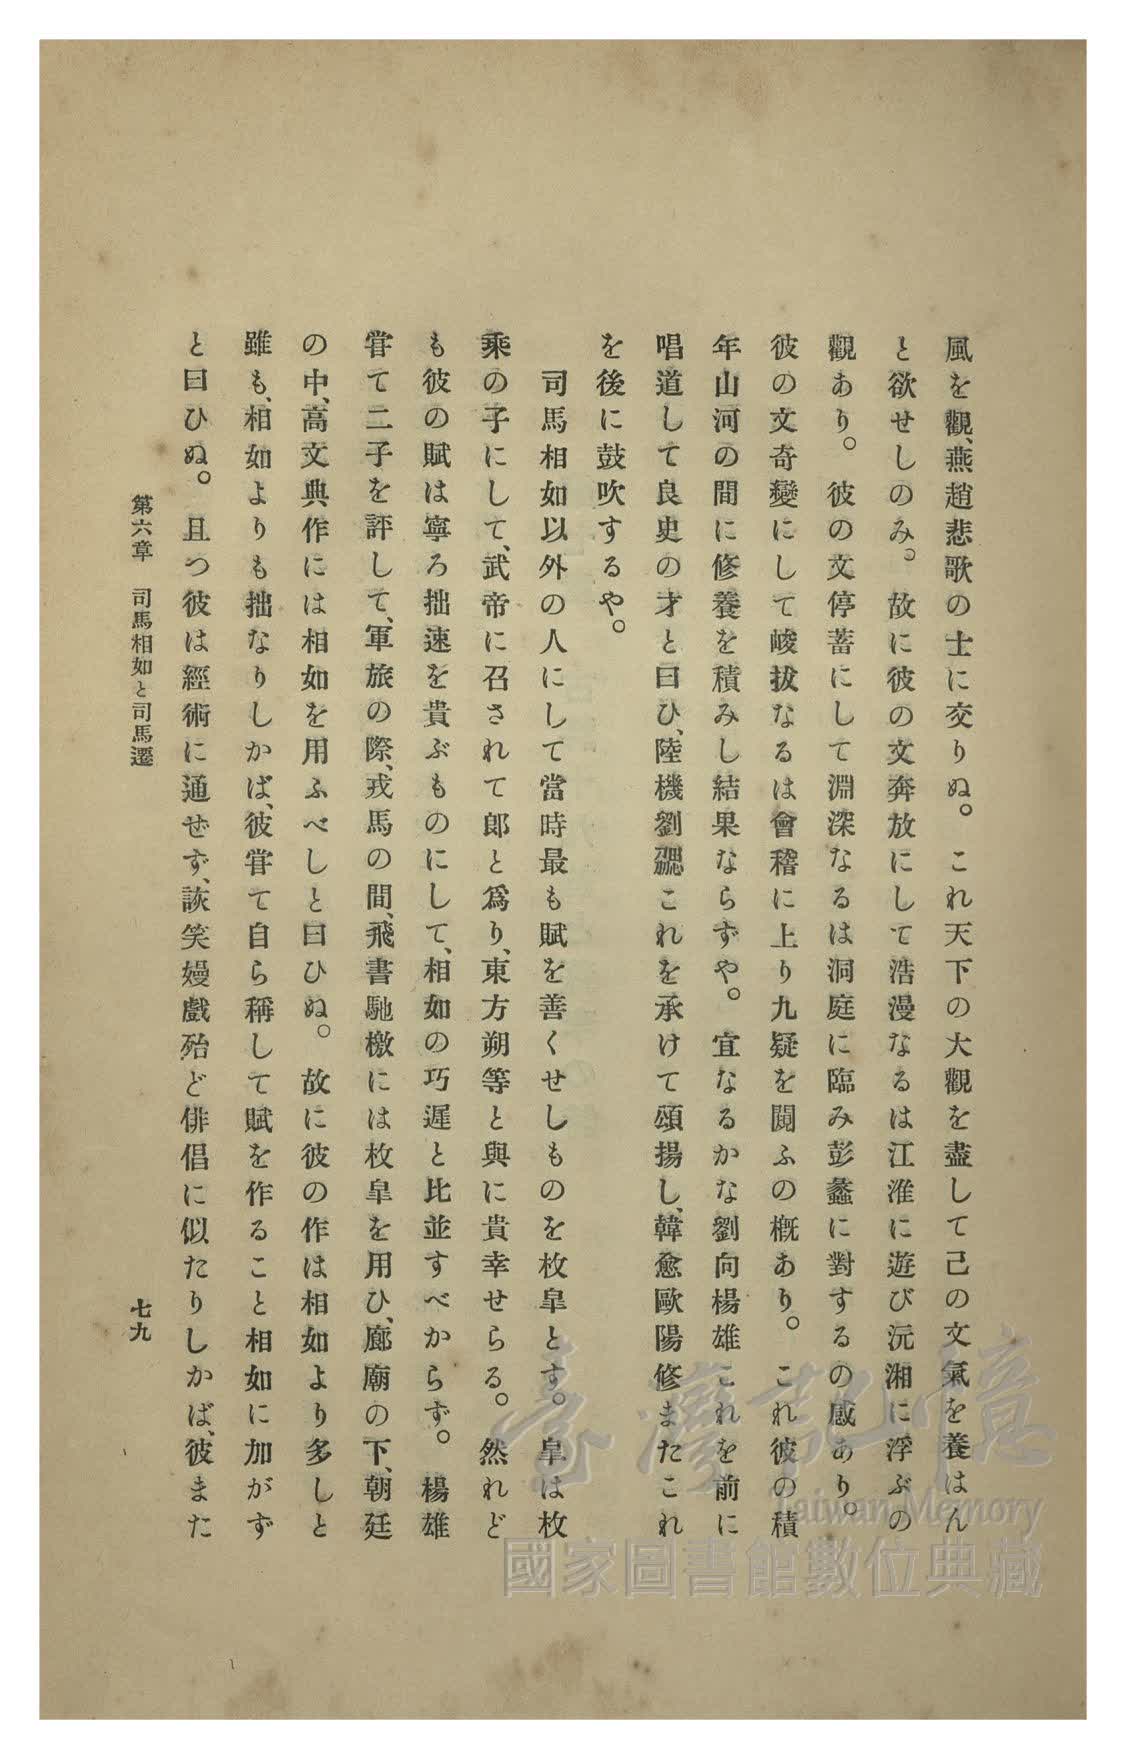 風を觀、燕趙悲歌の士に交りぬ。これ天下の大觀を盡して己の文氣を養はん
と欲せしのみ。故に彼の文奔放にして浩漫なるは江淮に遊び沅湘に浮ぶの
觀あり。彼の文停蓄にして淵深なるは洞庭に臨み彭蠡に對するの感あり。
彼の文奇變にして峻拔なるは會稽に上り九疑を闚ふの槪あり。これ彼の積
年山河の間に修養を積みし結果ならずや。宜なるかな劉向楊雄これを前に
唱道して良史の才と曰ひ、陸機劉勰これを承けて頌揚し、韓愈歐陽修またこれ
を後に鼓吹するや。
司馬相如以外の人にして當時最も賦を善くせしものを枚皐とす。皐は枚
乘の子にして、武帝に召されて郎と爲り、東方朔等と與に貴幸せらる。然れど
も彼の賦は寧ろ拙速を貴ぶものにして、相如の巧遲と比並すべからず。楊雄
甞て二子を評して、軍旅の際、戎馬の間、飛書馳檄には枚皐を用ひ、廊廟の下、朝廷
の中、高文典作には相如を用ふべしと曰ひぬ。故に彼の作は相如より多しと
雖も、相如よりも拙なりしかば、彼甞て自ら稱して賦を作ること相如に加がず
と曰ひぬ。且つ彼は經術に通ぜず、詼笑嫚戲殆ど俳倡に似たりしかば、彼また
第六章 司馬相如と司馬遷
七九
臺灣記憶
Taiwan Memory
國家圖書館數位典藏